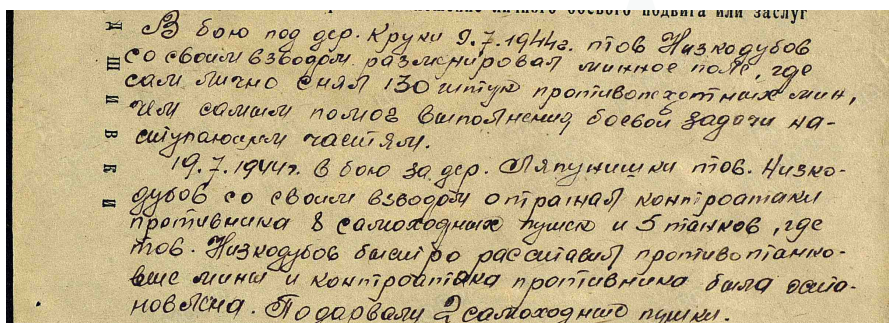 личного боевого подвига или заслуг
В бою под дер. Круки 9.7.1944г. тов Низкодубов
со своим взводом разменировал минное поле, где
сам лично снял 130 штук противопехотных мин,
чем самым помог выполнения боевой задачи на-
ступающим частям.
19.7.1944г. в бою за дер. Ляпунишки тов. Низко-
дубов со своим взводом отражал контроатаки
противника 8 самоходных пушек и 5 танков, где
тов. Низкодубов быстро расставил противотанко-
вые мины и контроатака противника была оста-
новлена. Подорвали 2 самоходные пушки.